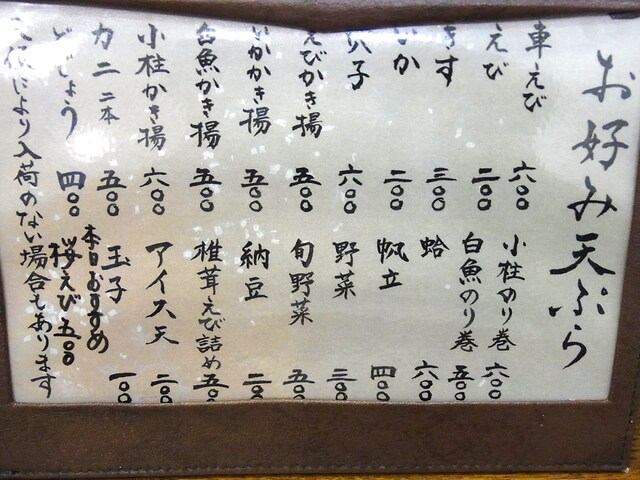 お好み天ぷら
車えび 六〇〇
えび 二〇〇
きす 三〇〇
いか 二〇〇
穴子 六〇〇
えびかき揚 五〇〇
いかかき揚 五〇〇
白魚かき揚 五〇〇
小柱かき揚 六〇〇
カニ二本 五〇〇
どじょう 四〇〇
小柱のり巻 六〇〇
白魚のり巻 五〇〇
蛤 六〇〇
帆立 四〇〇
野菜 三〇〇
旬野菜 五〇〇
納豆 二〇〇
椎茸えび詰め 五〇〇
アイス天 二〇〇
玉子 一〇〇
本日おすすめ
桜えび 五〇〇
天候により入荷のない場合もあります